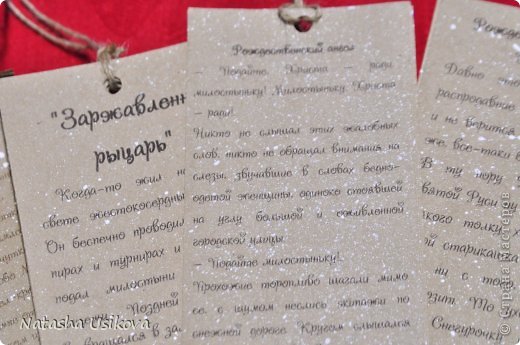 "Заржавленн
рыцарь"
Когда-то жил н
свете жестокосердны
Он беспечно проводил
пирах и турнирах и
подал милостыни
Поздней
Рождественский ангел
- Подайте, Христа - ради
милостыньку! Милостыньку, Христа
- ради!..
Никто не слышал этих жалобных
слов, никто не обращал внимания на
слезы, звучавшие в словах бедно-
одетой женщины, одиноко стоявшей
на углу большой и оживленной
городской улицы.
- Подайте милостыньку!..
Прохожие торопливо шагали мимо
ее, с шумом неслись экипажи по
снежной дороге. Кругом слышался
Рождеств
Давно
распродавные
и не верится
же, все-таки в
В ту пору
Святой Руси
толку
ни с того
Снегурочку
Natasha Usikova
© Страна Мастеров